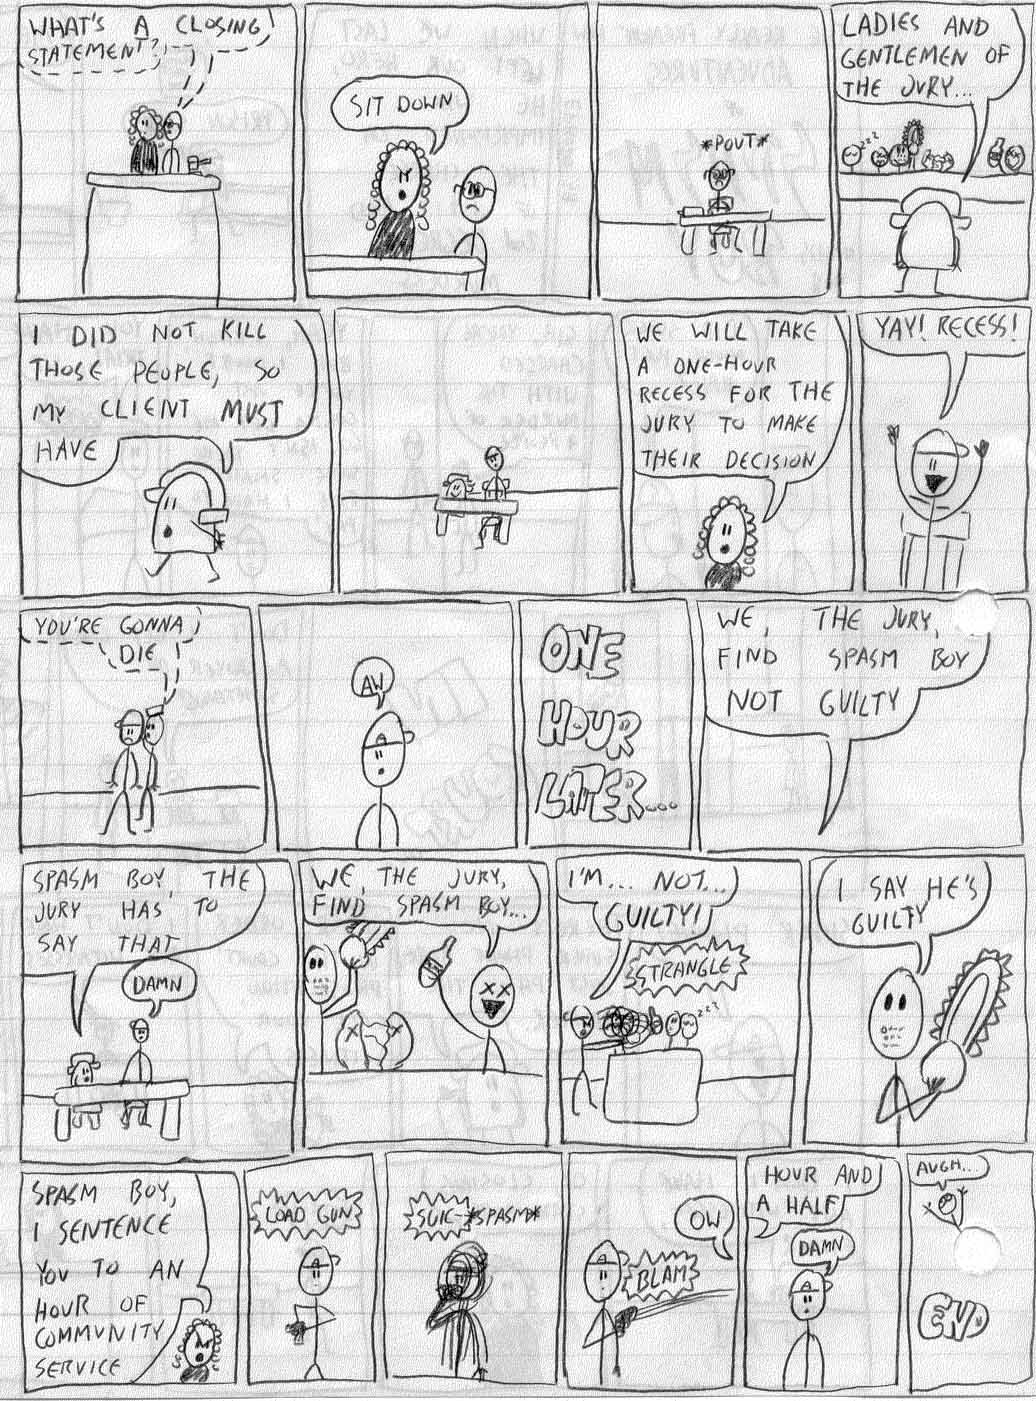 WHAT'S A CLOSING
STATEMENT?
SIT DOWN
*POUT*
LADIES AND
GENTLEMEN OF
THE JURY...
zzz
I DID NOT KILL
THOSE PEOPLE, SO
MY CLIENT MUST
HAVE
WE WILL TAKE
A ONE-HOUR
RECESS FOR THE
JURY TO MAKE
THEIR DECISION
YAY! RECESS!
YOU'RE GONNA
DIE
AW
ONE
HOUR
LATER...
WE, THE JURY,
FIND SPASM BOY
NOT GUILTY
SPASM BOY, THE
JURY HAS TO
SAY THAT
DAMN
WE, THE JURY,
FIND SPASM BOY...
I'M... NOT...
GUILTY!
STRANGLE
zzz
I SAY HE'S
GUILTY
SPASM BOY,
I SENTENCE
YOU TO AN
HOUR OF
COMMUNITY
SERVICE
LOAD GUN
SUIC-*SPASM*
OW
BLAM
HOUR AND
A HALF
DAMN
AUGH...
END